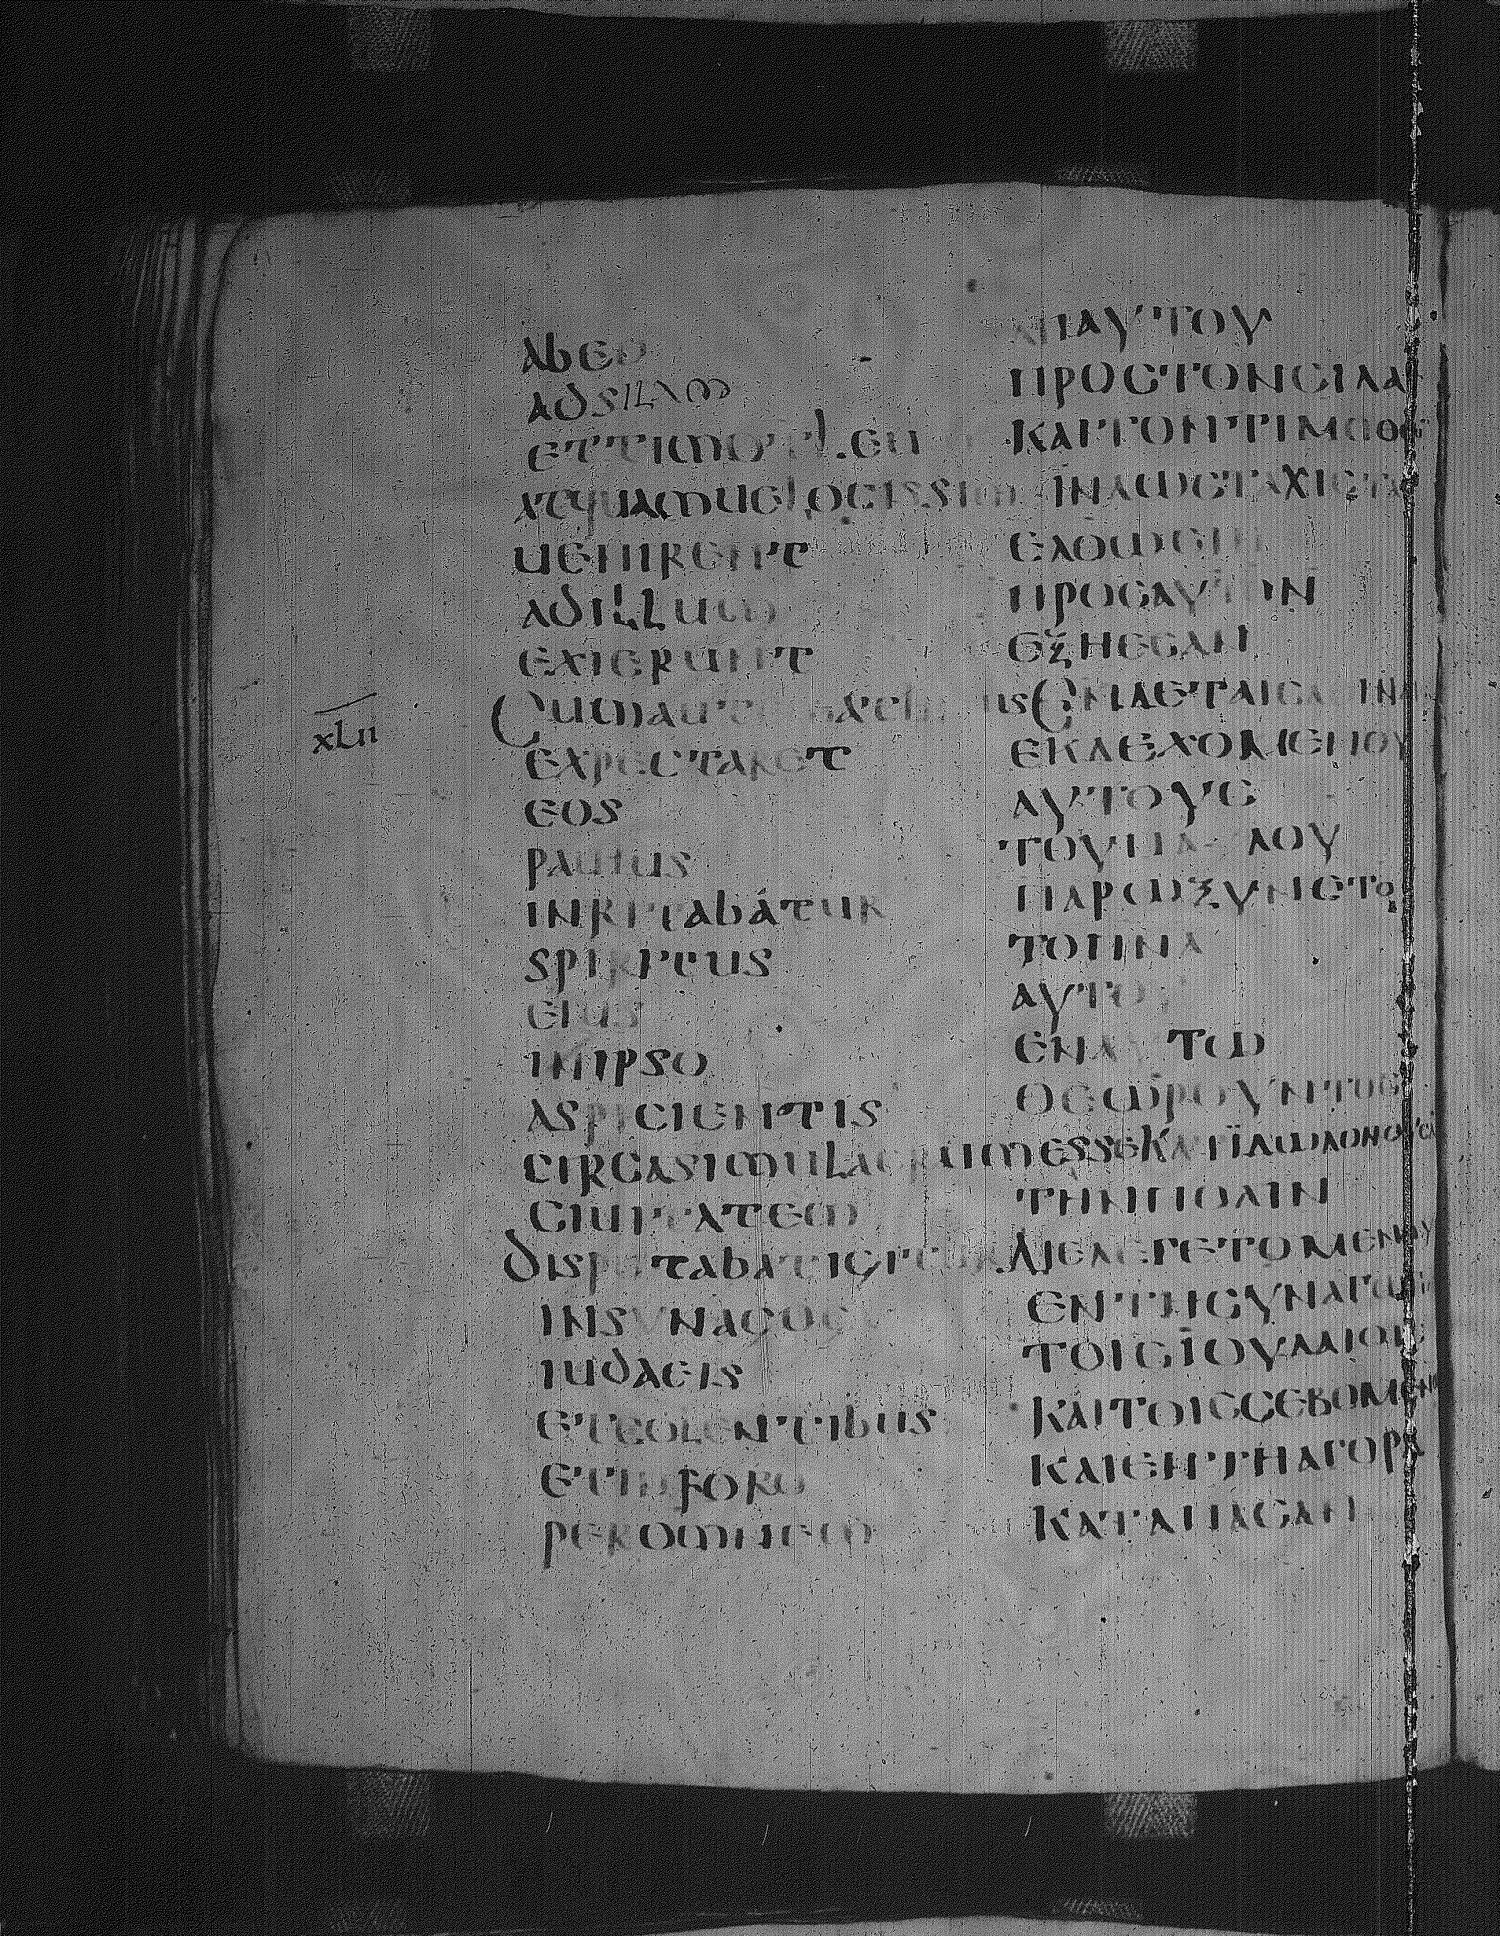 abeo
adsilam
ettimotheu
utquamuelocissim
uenirent
adillum
exierunt
xlii
Cumaute
expectaret
eos
paulus
inritabatur
spiritus
eius
inipso
aspicientis
circasimulacrumesse
ciuitatem
disputabatigitur
insynagoge
iudaeis
etcolentibus
etinforo
peromnem
ΑΠΑΥΤΟΥ
ΠΡΟСΤΟΝСΙΛΑ
ΚΑΙΤΟΝΤΙΜΟΘΕ
ΪΝΑωСΤΑΧΙСΤΑ
ΕΛΘωСΙΝ
ΠΡΟСΑΥΤΟΝ
ΕΞΗΕСΑΝ
ΕΝΔΕΤΑΙС
ΕΚΔΕΧΟΜΕΝΟΥ
ΑΥΤΟΥС
ΤΟΥΠΑΥΛΟΥ
ΠΑΡωΞΥΝΕΤΟ
ΤΟΠΝΑ
ΑΥΤΟΥ
ΕΝΑΥΤω
ΘΕωΡΟΥΝΤΟС
ΚΑΤΪΔωΛΟΝΟΥСΑ
ΤΗΝΠΟΛΙΝ
ΔΙΕΛΕΓΕΤΟΜΕΝΟΥ
ΕΝΤΗСΥΝΑΓωΓΗ
ΤΟΙСΪΟΥΔΑΙΟΙС
ΚΑΙΤΟΙССΕΒΟΜΕΝΟ
ΚΑΙΕΝΤΗΑΓΟΡΑ
ΚΑΤΑΠΑСΑΝ